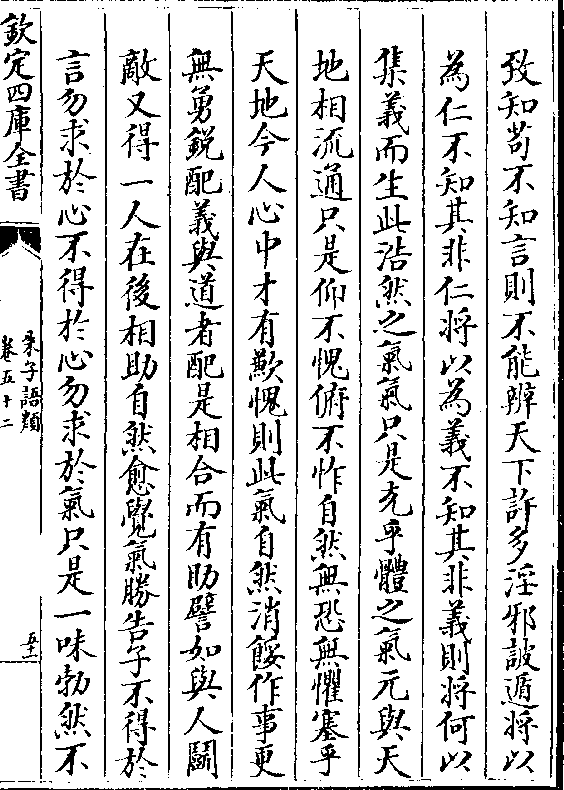 致知苟不知言則不能辨天下許多淫邪詖遁將以
為仁不知其非仁將以為義不知其非義則將何以
集義而生此浩然之氣氣只是充乎體之氣元與天
地相流通只是仰不愧俯不怍自然無恐無懼塞乎
天地今人心中才有歉愧則此氣自然消餒作事更
無勇銳配義與道者配是相合而有助譬如與人鬭
敵又得一人在後相助自然愈覺氣勝告子不得於
言勿求於心不得於心勿求於氣只是一味勃然不
欽定四庫全書
朱子語類
卷五十二